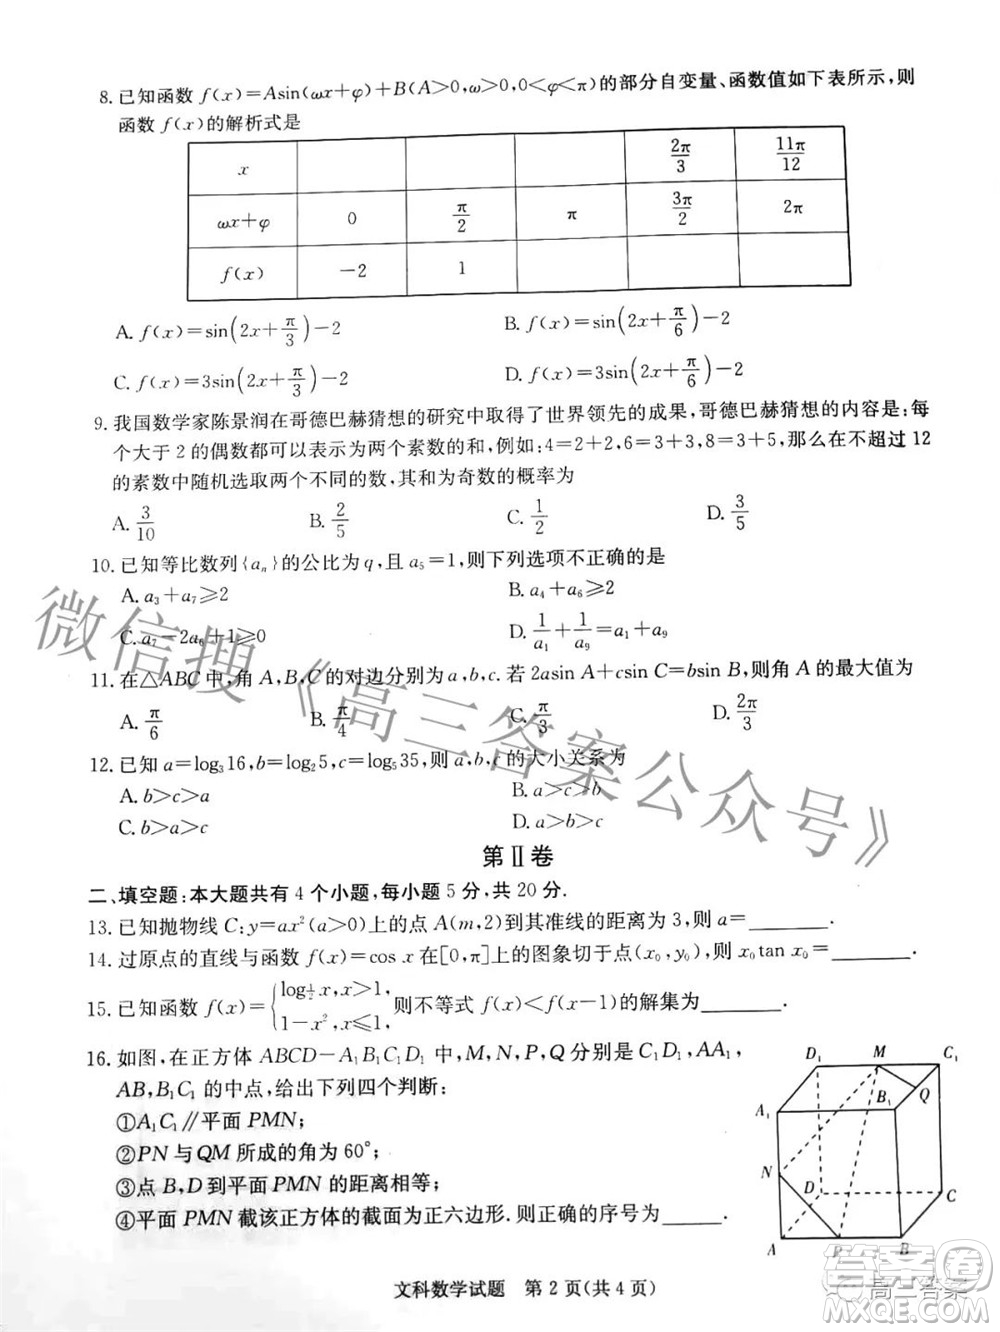 8. 已知函数 f(x)=Asin(ωx+φ)+B(A>0,ω>0,0<φ<π)的部分自变量、函数值如下表所示,则
函数 f(x)的解析式是
x 2π/3 11π/12
ωx+φ 0 π/2 π 3π/2 2π
f(x) −2 1
A. f(x)=sin(2x+π/3)−2 B. f(x)=sin(2x+π/6)−2
C. f(x)=3sin(2x+π/3)−2 D. f(x)=3sin(2x+π/6)−2
9. 我国数学家陈景润在哥德巴赫猜想的研究中取得了世界领先的成果,哥德巴赫猜想的内容是:每
个大于 2 的偶数都可以表示为两个素数的和,例如:4=2+2,6=3+3,8=3+5,那么在不超过 12
的素数中随机选取两个不同的数,其和为奇数的概率为
A. 3/10 B. 2/5 C. 1/2 D. 3/5
10. 已知等比数列{aₙ}的公比为 q,且 a₅=1,则下列选项不正确的是
A. a₃+a₇≥2 B. a₄+a₆≥2
C. a₇−2a₆+1≥0 D. 1/a₁+1/a₉=a₁+a₉
11. 在△ABC 中,角 A,B,C 的对边分别为 a,b,c. 若 2asin A+csin C=bsin B,则角 A 的最大值为
A. π/6 B. π/4 C. π/3 D. 2π/3
12. 已知 a=log₃16,b=log₂5,c=log₅35,则 a,b,c 的大小关系为
A. b>c>a B. a>c>b
C. b>a>c D. a>b>c
第Ⅱ卷
二、填空题:本大题共有 4 个小题,每小题 5 分,共 20 分.
13. 已知抛物线 C:y=ax²(a>0)上的点 A(m,2)到其准线的距离为 3,则 a=______.
14. 过原点的直线与函数 f(x)=cos x 在[0,π]上的图象切于点(x₀,y₀),则 x₀tan x₀=______.
15. 已知函数 f(x)={log_{1/2} x,x>1, 1−x²,x≤1, 则不等式 f(x)<f(x−1)的解集为______.
16. 如图,在正方体 ABCD−A₁B₁C₁D₁ 中,M,N,P 分别是 C₁D₁,AA₁,
AB,B₁C₁ 的中点,给出下列四个判断:
①A₁C∥平面 PMN;
②PN 与 QM 所成的角为 60°;
③点 B,D 到平面 PMN 的距离相等;
④平面 PMN 截该正方体的截面为正六边形.则正确的序号为______.
D₁ M C₁
Q
A₁ B₁
N
D C
A P B
文科数学试题 第 2 页(共 4 页)
微信搜《高三答案公众号》
高三答案
答案圈
MXQE.COM